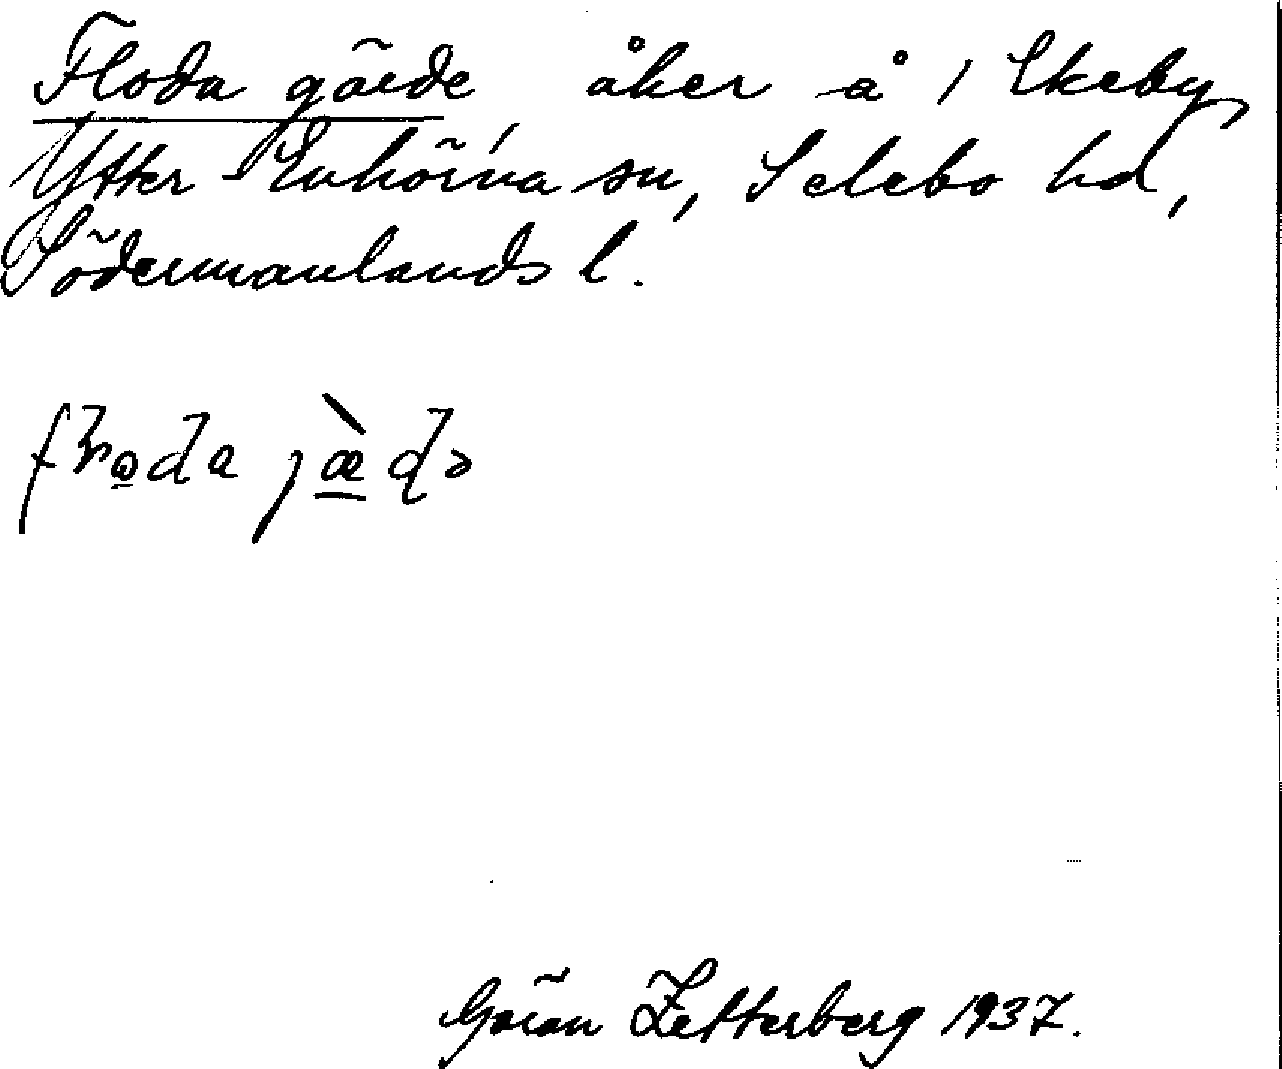 Floda gärde åker å 1 Ekeby,
Ytter Enhörna sn, Selebo hd,
Södermanlands l.
Göran Zetterberg 1937.